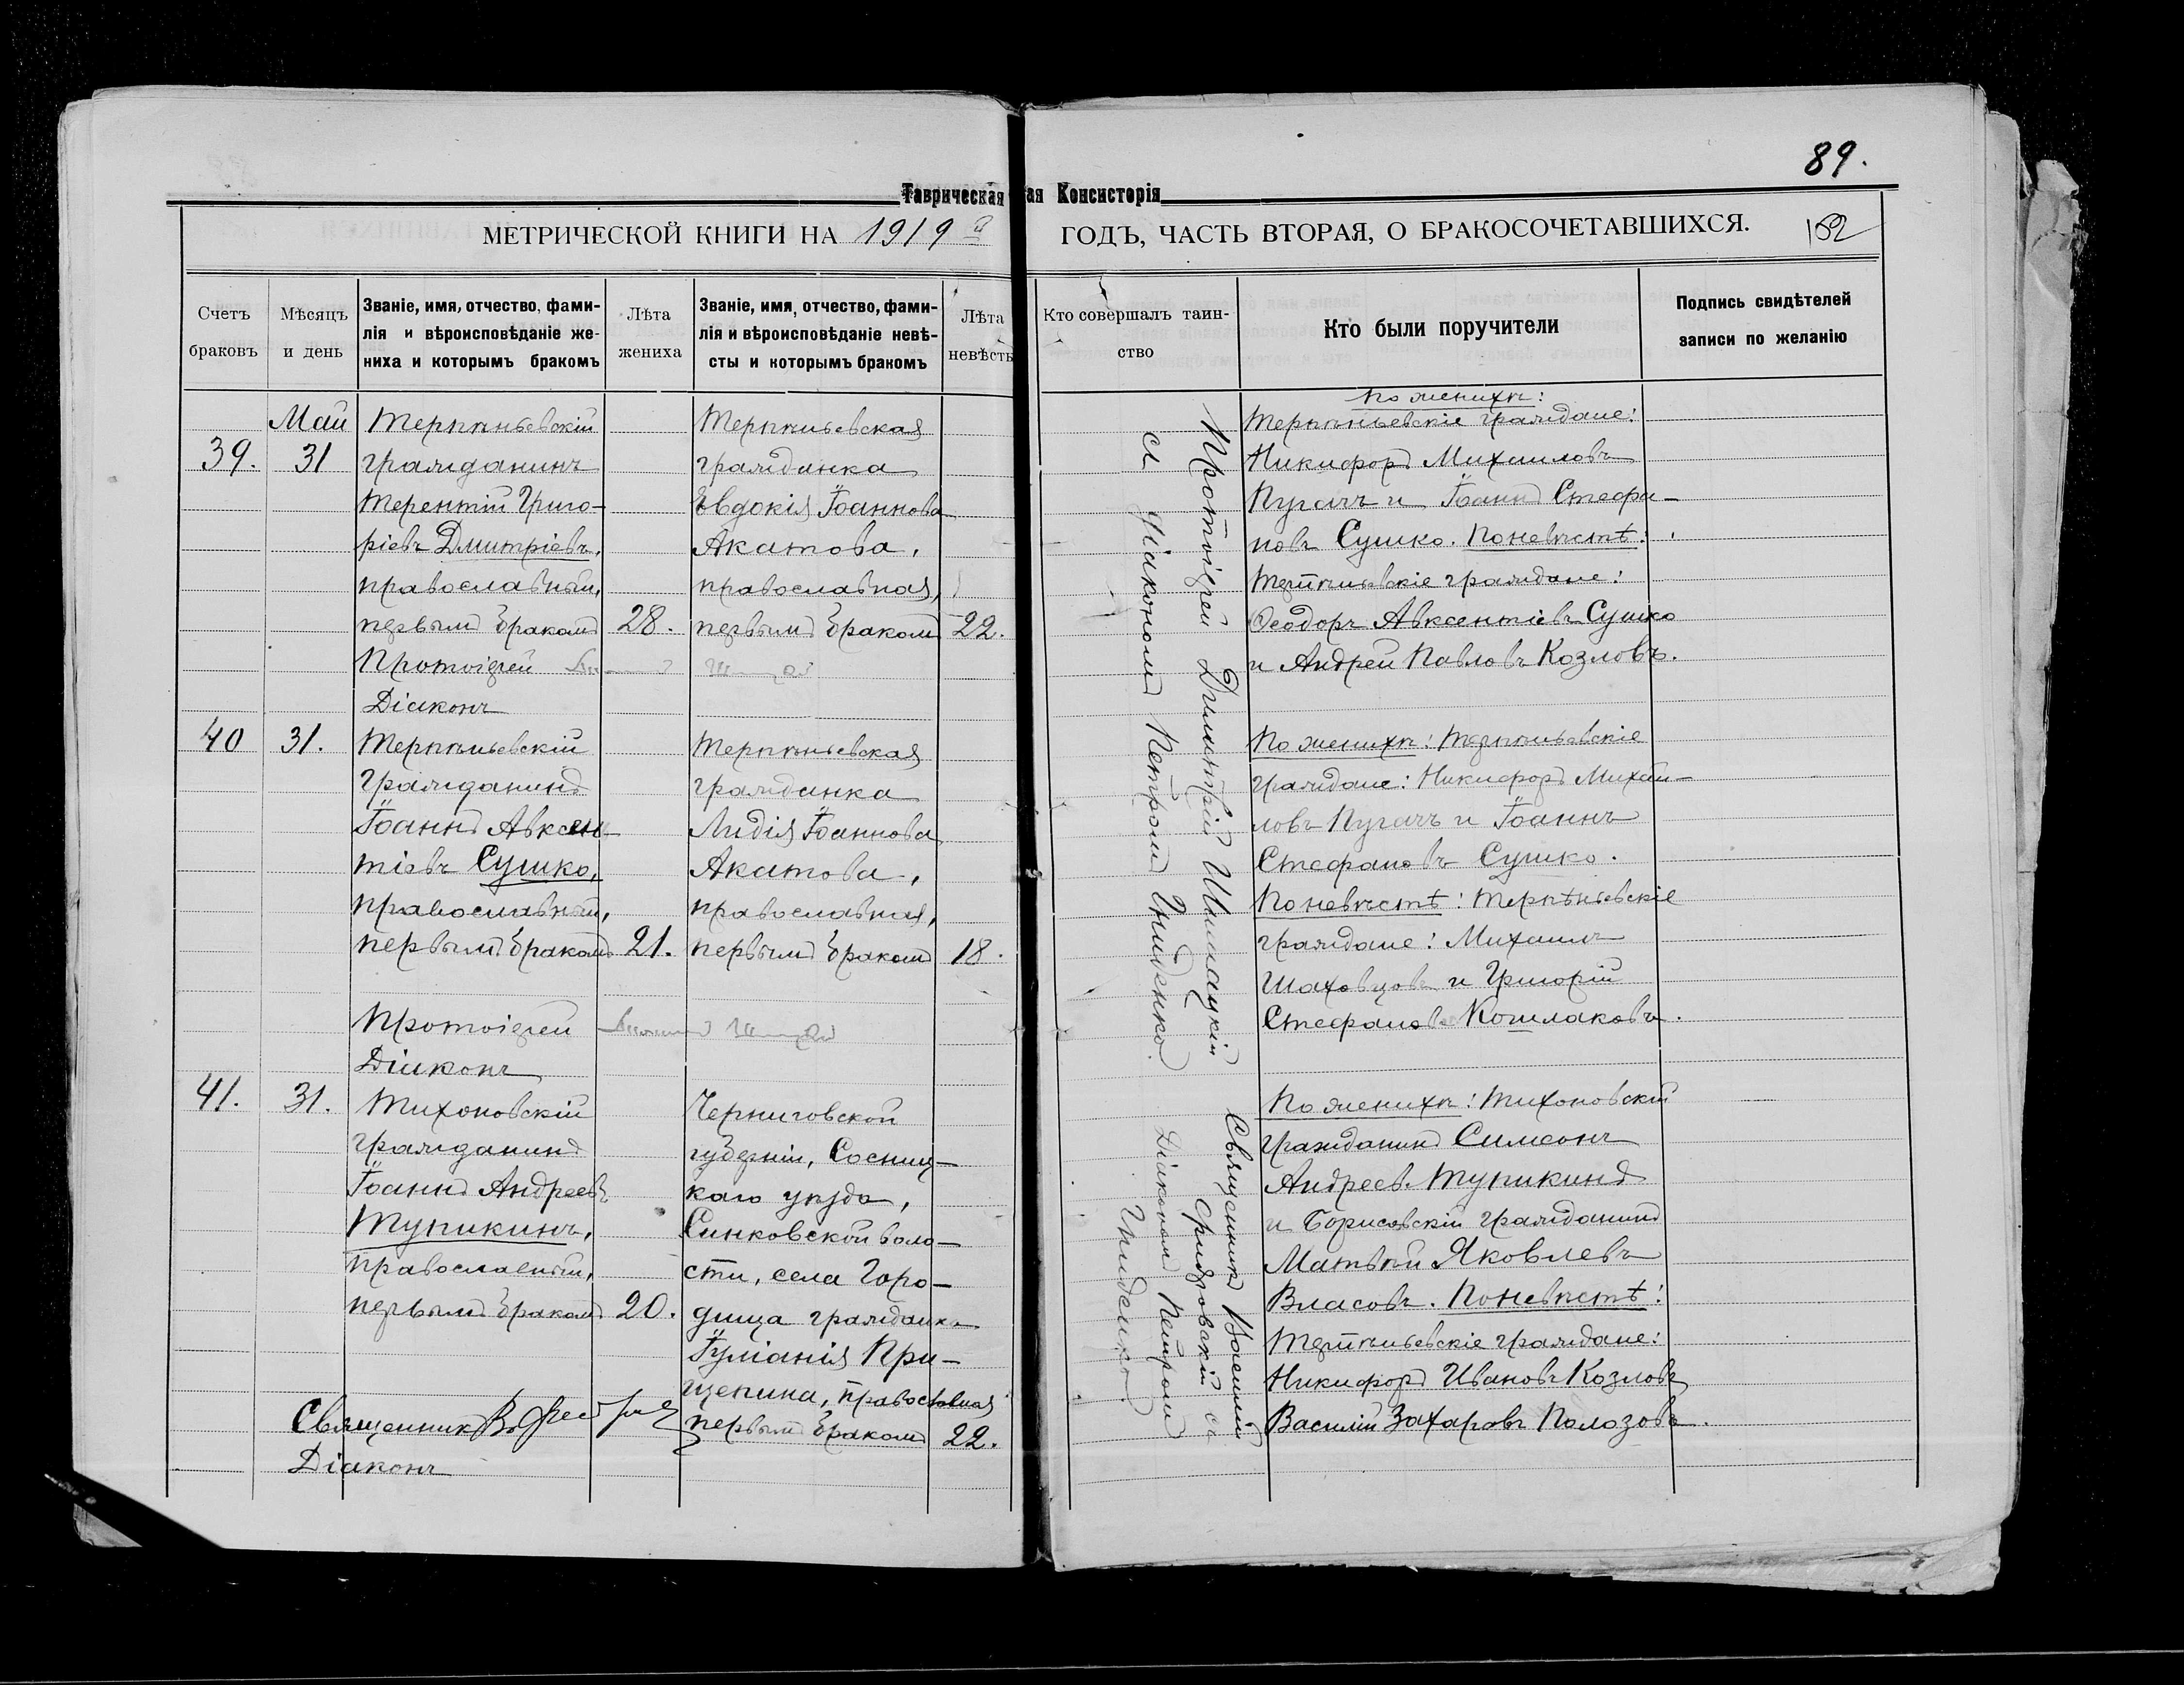 89.
Таврическая
ая Консисторія
МЕТРИЧЕСКОЙ КНИГИ НА 1919й
ГОДЪ, ЧАСТЬ ВТОРАЯ, О БРАКОСОЧЕТАВШИХСЯ.
152
Счетъ
браковъ
Мѣсяцъ
и день
Званіе, имя, отчество, фами-
лія и вѣроисповѣданіе же-
ниха и которымъ бракомъ
Лѣта
жениха
Званіе, имя, отчество, фами-
лія и вѣроисповѣданіе невѣ-
сты и которымъ бракомъ
Лѣта
невѣсты
Кто совершалъ таин-
ство
Кто были поручители
Подпись свидѣтелей
записи по желанію
39.
Май
31
Терпѣньевскій
гражданинъ
Терентій Григо-
ріевъ Дмитріевъ,
православный,
первымъ бракомъ
28.
Протоіерей
Діаконъ
Терпѣньевская
гражданка
Евдокія Іоаннова
Акатова,
православная,
первымъ бракомъ
22.
Протоіерей Димитрій
съ діакономъ Петромъ Гниденко.
По женихѣ:
Терпѣньевскіе граждане:
Никифоръ Михаиловъ
Пугачъ и Іоаннъ Стефа-
новъ Сушко. По невѣстѣ:
Терпѣньевскіе граждане:
Ѳеодоръ Авксентіевъ Сушко
и Андрей Павловъ Козловъ.
40
31.
Терпѣньевскій
гражданинъ
Іоаннъ Авксен-
тіевъ Сушко,
православный,
первымъ бракомъ
21.
Протоіерей
Діаконъ
Терпѣньевская
гражданка
Лидія Іоаннова
Акатова,
православная,
первымъ бракомъ
18.
По женихѣ: Терпѣньевскіе
граждане: Никифоръ Михаи-
ловъ Пугачъ и Іоаннъ
Стефановъ Сушко.
По невѣстѣ: Терпѣньевскіе
граждане: Михаилъ
Шаховцовъ и Григорій
Стефановъ Кошлаковъ.
41.
31.
Тихоновскій
гражданинъ
Іоаннъ Андреевъ
Тупикинъ,
православный,
первымъ бракомъ
20.
Священникъ
Діаконъ
Черниговской
губерніи, Сосниц-
каго уѣзда,
Синковской воло-
сти, села Горо-
дища гражданка
Іуліанія При-
щепина, православная
первымъ бракомъ
22.
Священникъ Василій
съ
Діакономъ Петромъ
Гниденко.
По женихѣ: Тихоновскій
гражданинъ Симеонъ
Андреевъ Тупикинъ
и Борисовскій гражданинъ
Матвѣй Яковлевъ
Власовъ. По невѣстѣ:
Терпѣньевскіе граждане:
Никифоръ Ивановъ Козловъ
Василій Захаровъ Полозовъ.